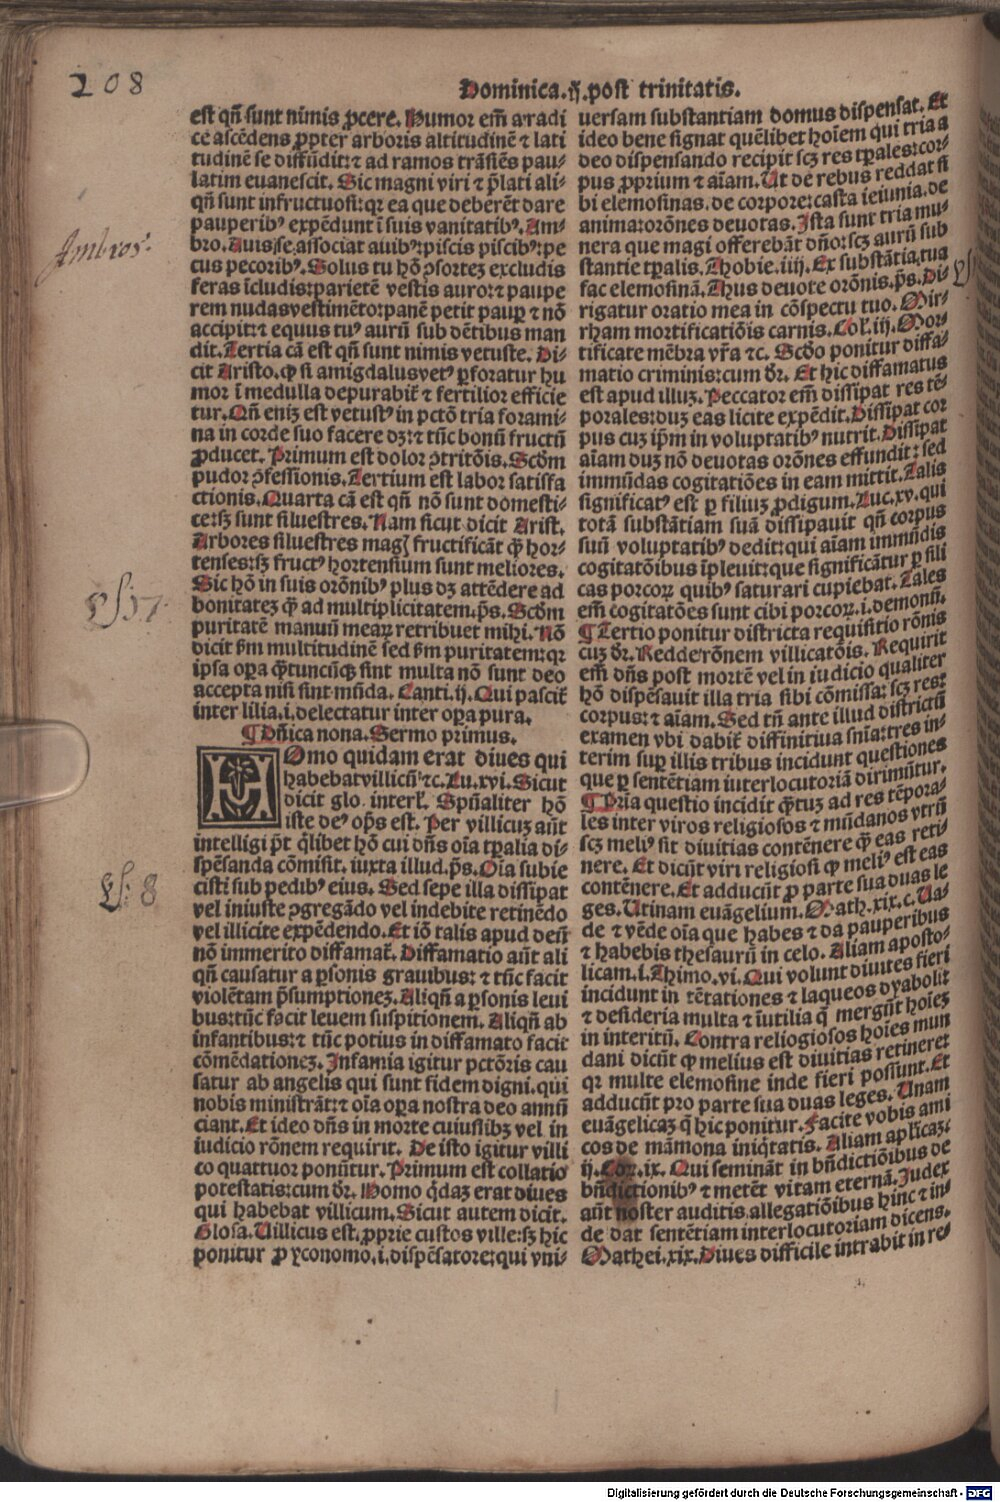 208
Dominica.ij.post trinitatis.
est qñ sunt nimis ꝓcere. Humor em̃ a radi
ce ascẽdens ꝓpter arboris altitudinẽ ⁊ lati
tudinẽ se diffũdit:⁊ ad ramos trãsiẽs pau⸗
latim euanescit. Sic magni viri ⁊ p̃lati ali⸗
qñ sunt infructuosi:qꝛ ea que deberẽt dare
pauperibꝰ expẽdunt ĩ suis vanitatibꝰ. Am⸗
bro. Auis se associat auibꝰ:piscis piscibꝰ:pe
cus pecoribꝰ. Solus tu hõ ꝯsortez excludis
feras ĩcludis:parietẽ vestis auro:⁊ paupe
rem nudas vestimẽto:panẽ petit paup̱ ⁊ nõ
accipit:⁊ equus tuꝰ aurũ sub dẽtibus man
dit. Tertia cã est qñ sunt nimis vetuste. Di⸗
cit Aristo. ꝙ si amigdalus vetꝰ ꝑforatur hu
mor ĩ medulla depurabit̃ ⁊ fertilior efficie
tur. Qñ enĩz est vetustꝰ in pctõ tria forami⸗
na in corde suo facere dꝫ:⁊ tũc bonũ fructũ
ꝓducet. Primum est dolor ꝯtritõis. Scḋm
pudor ꝯfessionis. Tertium est labor satisfa
ctionis. Quarta cã est qñ nõ sunt domesti⸗
ce:sꝫ sunt siluestres. Nam sicut dicit Arist.
Arbores siluestres mag̃ fructificãt q̃ hor⸗
tenses:sꝫ fructꝰ hortensium sunt meliores.
Sic hõ in suis orõnibꝰ plus dꝫ attẽdere ad
bonitatez q̃ ad multiplicitatem. p̃s. Scḋm
puritatẽ manuũ meaꝝ retribuet mihi. Nõ
dicit ẜm multitudinẽ sed ẜm puritatem:qꝛ
ipsa oꝑa q̃tuncũqꝫ sint multa nõ sunt deo
accepta nisi sint mũda. Canti.ij. Qui pascit̃
inter lilia.i.delectatur inter oꝑa pura.
¶ Dñica nona. Sermo primus.
HOmo quidam erat diues qui
habebat villicũ ⁊c. Lu.xvi. Sicut
dicit glo. interl̃. Spũaliter hõ
iste deꝰ op̃s est. Per villicuz aũt
intelligi p̃t q̃libet hõ cui dñs oĩa tꝑalia di⸗
spẽsanda cõmisit. iuxta illud. p̃s. Oĩa subie
cisti sub pedibꝰ eius. Sed sepe illa dissipat
vel iniuste ꝯgregãdo vel indebite retinẽdo
vel illicite expẽdendo. Et iõ talis apud deũ
nõ immerito diffamat̃. Diffamatio aũt ali
qñ causatur a ꝑsonis grauibus: ⁊ tũc facit
violẽtam p̃sumptionez. Aliqñ a ꝑsonis leui
bus:tũc facit leuem suspitionem. Aliqñ ab
infantibus:⁊ tũc potius in diffamato facit
cõmẽdationez. Infamia igitur pctõris cau
satur ab angelis qui sunt fidem digni. qui
nobis ministrãt:⁊ oĩa oꝑa nostra deo annũ
ciant. Et ideo dñs in morte cuiuslibꝫ vel in
iudicio rõnem requirit. De isto igitur villi
co quattuor ponũtur. Primum est collatio
potestatis:cum dr̃. Homo q̃daz erat diues
qui habebat villicum. Sicut autem dicit.
Glosa. Uillicus est ꝓprie custos ville:sꝫ hic
ponitur ꝓ yconomo.i.dispẽsatore:qui vni⸗
uersam substantiam domus dispensat. Et
ideo bene signat quẽlibet hoĩem qui tria a
deo dispensando recipit scꝫ res tꝑales:cor⸗
pus ꝓprium ⁊ aĩam. Ut de rebus reddat si
bi elemosinas. de corpore:casta ieiunia. de
anima:orõnes deuotas. Ista sunt tria mu⸗
nera que magi offerebãt dño:scꝫ aurũ sub
stantie tꝑalis. Thobie.iiij. Ex substãtia tua
fac elemosinã. Thus deuote orõnis. p̃s. Di⸗
rigatur oratio mea in cõspectu tuo. Mir⸗
rham mortificatiõis carnis. Col̃.iij. Mor
tificate mẽbra vr̃a ⁊c. Scḋo ponitur diffa⸗
matio criminis:cum dr̃. Et hic diffamatus
est apud illuz. Peccator em̃ dissipat res tẽ⸗
porales:duz eas licite expẽdit. Dissipat cor
pus cuz ip̃m in voluptatibꝰ nutrit. Dissipat
aĩam duz nõ deuotas orõnes effundit: sed
immũdas cogitatiões in eam mittit. Talis
significatꝰ est ꝑ filiuz ꝓdigum. Luc.xv. qui
totã substãtiam suã dissipauit qñ corpus
suũ voluptatibꝰ dedit:qui aĩam immũdis
cogitatõibus ĩpleuit:que significãtur ꝑ sili
cas porcoꝝ quibꝰ saturari cupiebat. Tales
em̃ cogitatões sunt cibi porcoꝝ.i.demonũ.
¶ Tertio ponitur districta requisitio rõnis
cuz dr̃. Redde rõnem villicatõis. Requirit
em̃ dñs post mortẽ vel in iudicio qualiter
hõ dispẽsauit illa tria sibi cõmissa: scꝫ res:
corpus:⁊ aĩam. Sed tñ ante illud districtũ
examen vbi dabit̃ diffinitiua sñia:tres in⸗
terim suꝑ illis tribus incidunt questiones
que ꝑ sentẽtiam iuterlocutoriã dirimũtur.
¶ Pria questio incidit q̃tuz ad res tẽpora⸗
les inter viros religiosos ⁊ mũdanos vtrũ
scꝫ meliꝰ sit diuitias contẽnere q̃ eas reti⸗
nere. Et dicũt viri religiosi ꝙ meliꝰ est eas
contẽnere. Et adducũt ꝓ parte sua duas le
ges. Utinam euãgelium. Math.xix.c. Ua⸗
de ⁊ vẽde oĩa que habes ⁊ da pauperibus
⁊ habebis thesaurũ in celo. Aliam aposto⸗
licam.i.Thimo.vi. Qui volunt diuites fieri
incidunt in tẽtationes ⁊ laqueos dyaboli:
⁊ desideria multa ⁊ ĩutilia q̃ mergũt hoĩes
in interitũ. Contra reliogiosos hoĩes mun
dani dicũt ꝙ melius est diuitias retineret
qꝛ multe elemosine inde fieri possunt. Et
adducũt pro parte sua duas leges. Unam
euãgelicaz q̃ hic ponitur. Facite vobis ami
cos de mãmona iniq̃tatis. Aliam apl̃icaz:
ij. Cor.ix. Qui seminãt in bñdictiõibus de
bñdictionibꝰ ⁊ metẽt vitam eternã. Judex
aũt noster auditis allegatiõibus hinc ⁊ in⸗
de dat sentẽtiam interlocutoriam dicens.
Mathei.xix. Diues difficile intrabit in re⸗
Ambros.
ps 17.
ps: 8
ps
Digitalisierung gefördert durch die Deutsche Forschungsgemeinschaft - DFG